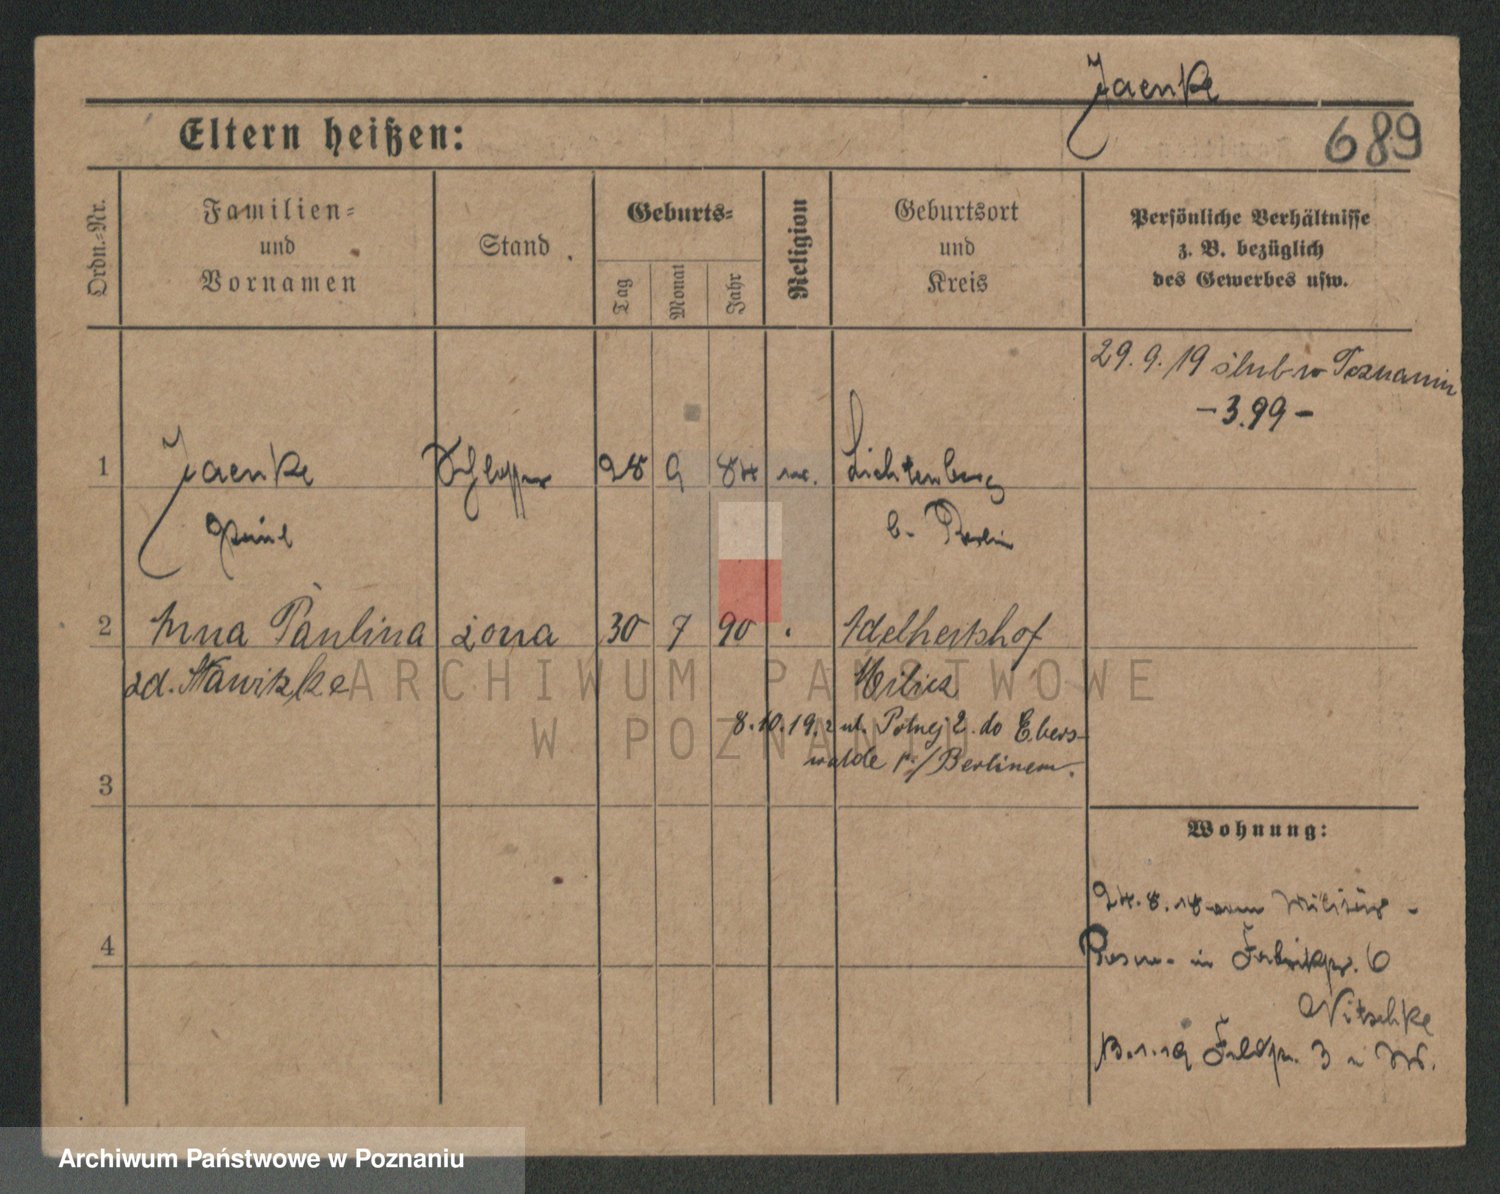 Jaenke
689
Eltern heißen:
Ordn.-Nr.
Familien-
und
Vornamen
Stand
Geburts-
Tag
Monat
Jahr
Religion
Geburtsort
und
Kreis
Persönliche Verhältnisse
z. B. bezüglich
des Gewerbes usw.
29.9.19 ślub w Poznaniu
- 3.99 -
1 Jaenke Schlosser 28 9 84 Lichtenberg
Paul b. Berlin
2 Anna Paulina żona 30 7 90
zd. Nawitzke Milicz
ARCHIWUM PAŃSTWOWE
W POZNANIU
8.10.19. z ul. Polnej 2. do Ebers-
walde p./Berlinem.
3
Wohnung:
24.8.18 vom Militär -
4
in Fabrikstr. 6
Nitschke
13.1.19 Feldstr. 3
Archiwum Państwowe w Poznaniu